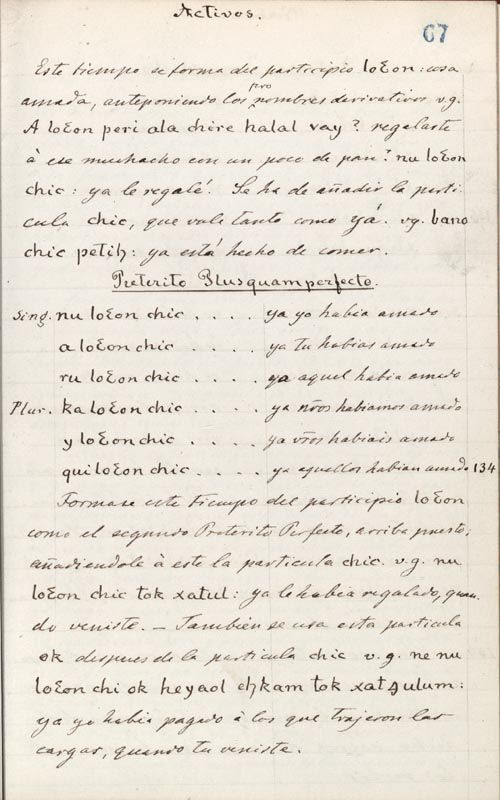 Activos.
67
Este tiempo se forma del participio loƐon: cosa
pro
amada, anteponiendo los nombres derivativos v.g.
A loƐon peri ala chire halal vay? regalaste
à ese muchacho con un poco de pan? nu loƐon
chic: ya le regalé. Se ha de añadir la parti-
cula chic, que vale tanto como yá. vg. bano
chic petiɧ: ya está hecho de comer.
Preterito Plusquamperfecto.
Sing. nu loƐon chic . . . . ya yo habia amado
a loƐon chic . . . . ya tu habias amado
ru loƐon chic . . . . ya aquel habia amado
Plur. ka loƐon chic . . . . ya nr̃os habiamos amado
y loƐon chic . . . . ya vr̃os habiais amado
qui loƐon chic . . . . ya aquellos habian amado 134
Formase este tiempo del participio loƐon
como el segundo Preterito Perfecto, arriba puesto;
añadiendole à este la particula chic. v.g. nu
loƐon chic tok xatul: ya le habia regalado, quan-
do veniste. — También se usa esta particula
ok despues de la particula chic v.g. ne nu
loƐon chi ok heyaol cɧkam tok xatꜭulum:
ya yo habia pagado à los que trajeron las
cargas, quando tu veniste.